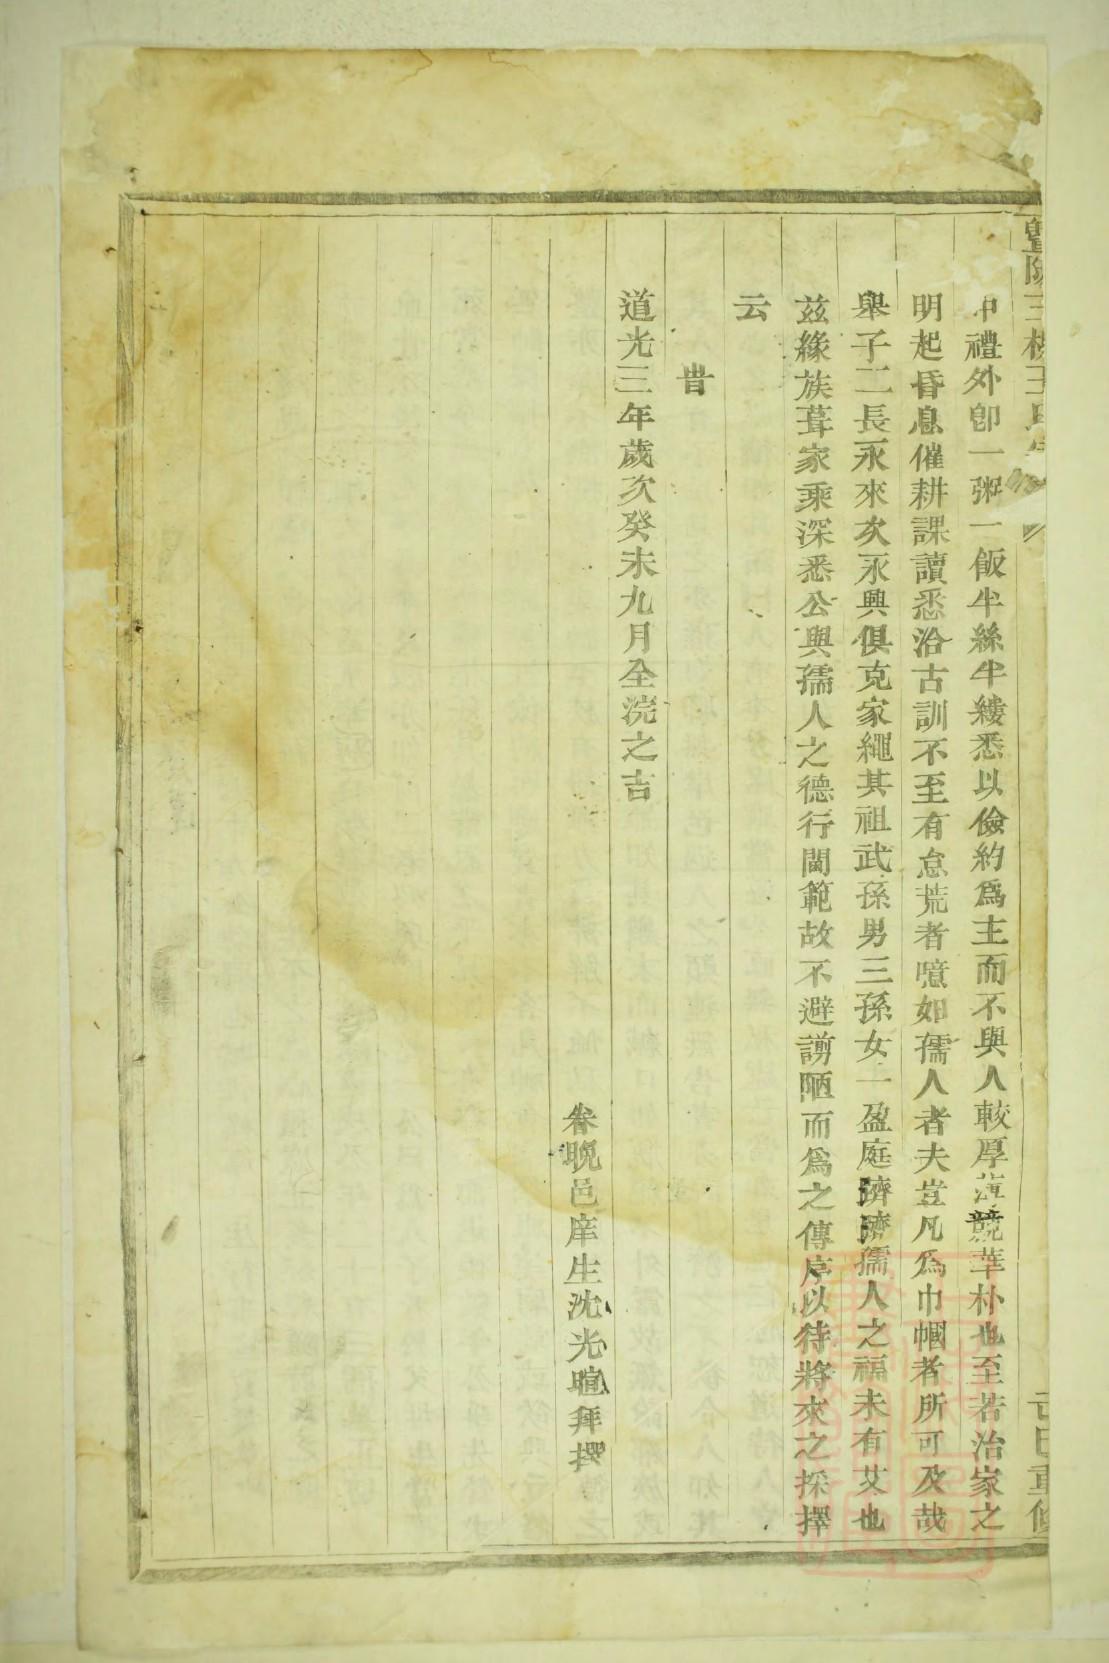 中禮外卽一粥一飯半絲半縷悉以儉約爲主而不與人較厚薄競華朴也至若治家之
明起昏息催耕課讀悉洽古訓不至有怠荒者噫如孺人者夫豈凡爲巾幗者所可及哉
舉子二長永來次永興俱克家繩其祖武孫男三孫女一盈庭躋躋孺人之福未有艾也
茲緣族葺家乘深悉公與孺人之德行閫範故不避謭陋而爲之傳序以待將來之採擇
云
旹
道光三年歲次癸未九月全浣之吉
眷晩邑庠生沈光暄拜撰